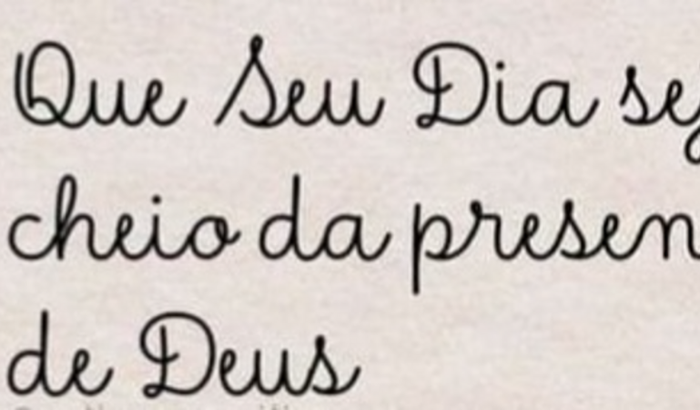 Que Seu Dia se
cheio da presen
de Deus